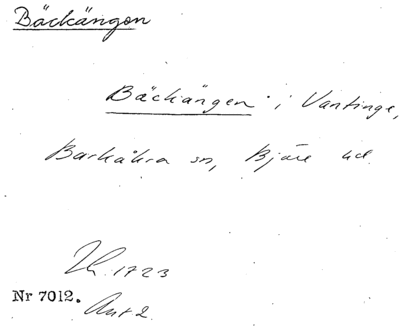 Bäckängen
Bäckängen i Vantinge,
Barkåkra sn, Bjäre hd.
1723
Nr 7012.
Ant 2.